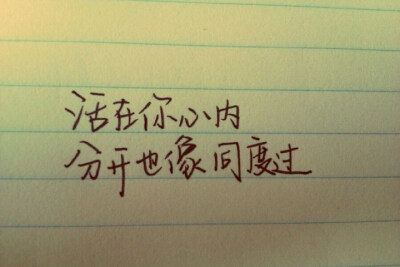 活在你心内
分开也像同度过